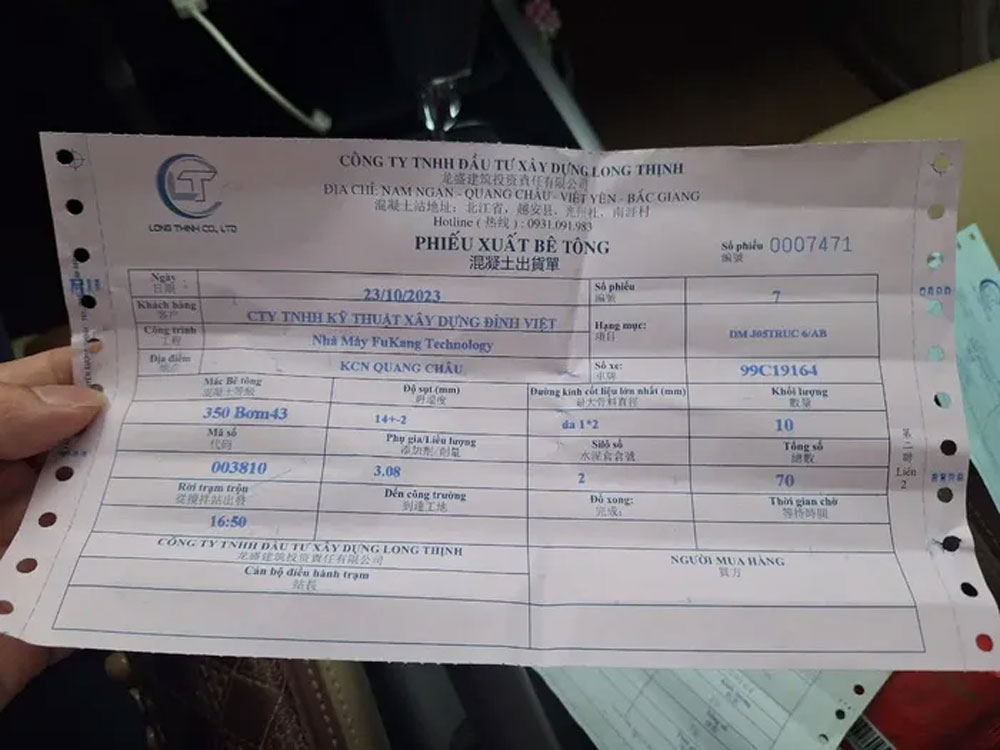 CÔNG TY TNHH ĐẦU TƯ XÂY DỰNG LONG THỊNH
龙盛建筑投资責任有限公司
ĐỊA CHỈ: NAM NGẠN - QUANG CHÂU - VIỆT YÊN - BẮC GIANG
混凝土站地址: 北江省, 越安县, 光州社, 南涯村
Hotline ( 热线 ) : 0931.091.983
LT
LONG THINH CO., LTD
PHIẾU XUẤT BÊ TÔNG
混凝土出貨單
Số phiếu 0007471
編號
Ngày 23/10/2023 Số phiếu 7
日期: 編號
Khách hàng CTY TNHH KỸ THUẬT XÂY DỰNG ĐỈNH VIỆT
客户
Hạng mục: DM J05TRUC 6/AB
項目
Công trình Nhà Máy FuKang Technology
工程
Địa điểm KCN QUANG CHÂU Số xe: 99C19164
車牌
Mác Bê tông Độ sụt (mm) Đường kính cốt liệu lớn nhất (mm) Khối lượng
混凝土等級 坍落度 最大骨料直徑 數量
350 Bom43 14+-2 da 1*2 10
Mã số Phụ gia/Liều lượng Silô số Tổng số
代码 添加劑/劑量 水泥倉倉號 總數
003810 3.08 2 70
Rời trạm trộn Đến công trường Đổ xong: Thời gian chờ
從攪拌站出發 到達工地 完成: 等待時間
16:50
CÔNG TY TNHH ĐẦU TƯ XÂY DỰNG LONG THỊNH NGƯỜI MUA HÀNG
龙盛建筑投資責任有限公司 買方
Cán bộ điều hành trạm
站長
第二聯
Liên 2